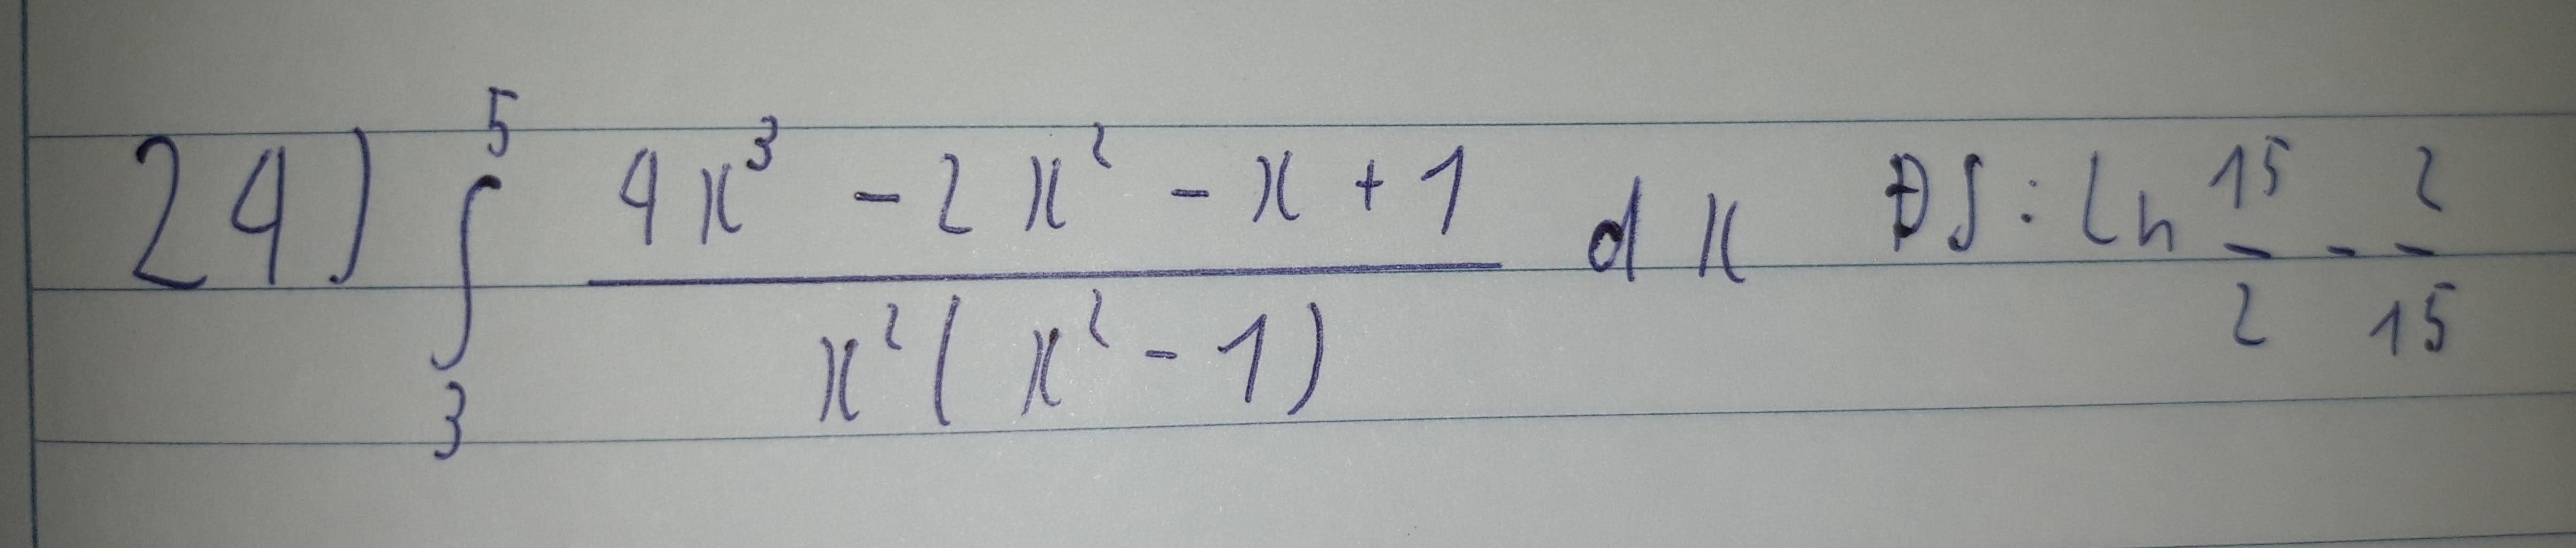 24) ∫₃⁵ (4x³ - 2x² - x + 1) / (x²(x² - 1)) dx ĐS: Ln 15/2 - 2/15